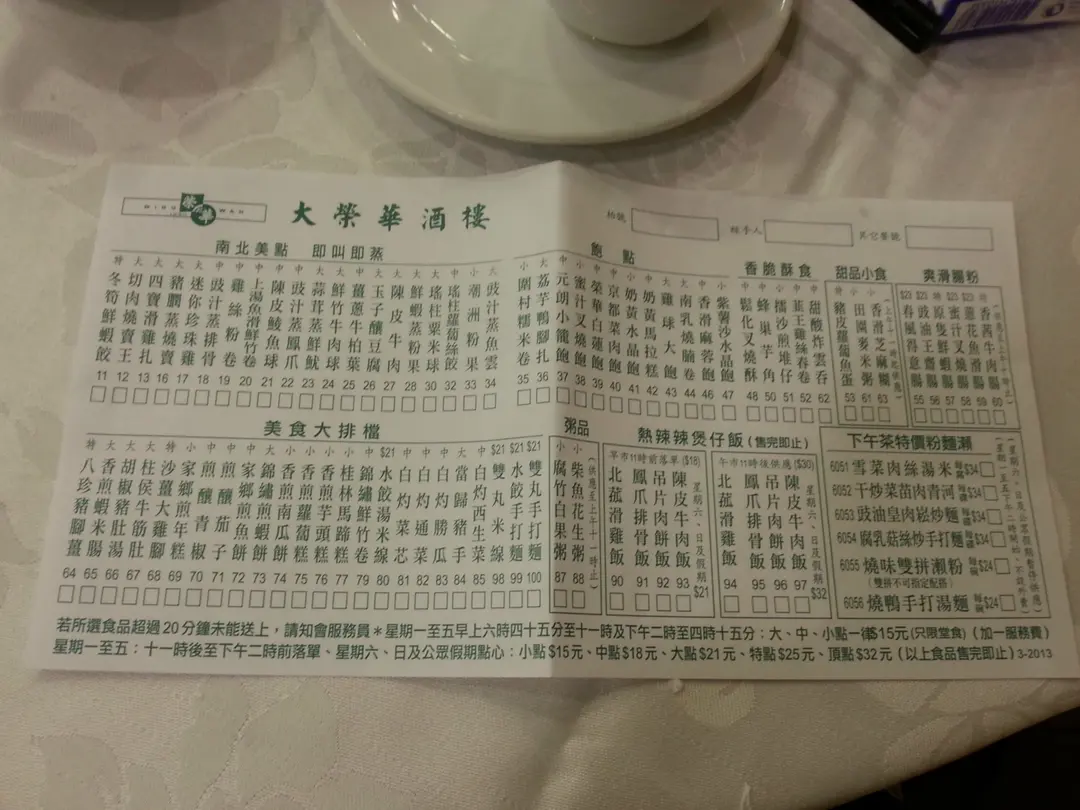 榮華
WAH
大榮華酒樓
枱號
經手人
其它單號
南北美點 即叫即蒸
特 冬筍鮮蝦餃 11
大 切肉燒賣王 12
大 四寶滑雞扎 13
大 豬膶燒賣 14
大 迷你珍珠雞 17
中 豉汁蒸排骨 18
中 雞絲粉卷 19
中 上湯魚滑鮮竹卷 20
中 陳皮鯪魚球 21
中 豉汁蒸鳳爪 22
中 蒜茸蒸鮮魷 23
中 鮮竹牛肉球 24
中 薑蔥牛柏葉 25
中 玉子釀豆腐 26
大 陳皮牛肉 27
中 鮮蝦蒸粉果 28
大 瑤柱粟米球 30
中 瑤柱蘿蔔絲餃 32
小 潮洲粉果 33
大 豉汁蒸魚雲 34
飽點
小 圍村糯米卷 35
大 荔芋鴨腳扎 36
中 元朗小籠飽 37
中 蜜汁叉燒飽 38
小 榮華白蓮飽 39
中 京都菜肉飽 40
小 奶黃水晶飽 41
中 奶黃馬拉糕 42
大 雞球大飽 43
大 南乳燒腩卷 44
中 香滑麻蓉飽 46
小 紫薯沙水晶飽 47
香脆酥食
中 鬆化叉燒酥 48
中 蜂巢芋角 50
小 擂沙煎堆仔 51
中 韮王雞絲春卷 52
中 甜酸炸雲吞 62
甜品小食
特 豬皮蘿蔔魚蛋 53
小 田園麥米粥 61
小 香滑芝麻糊 63
爽滑腸粉
$23 春風得意腸 55
$23 豉油王齋腸 56
特 原隻鮮蝦腸 57
$23 蜜汁叉燒腸 58
$23 蔥花魚滑腸 59
特 香茜牛肉腸 60
美食大排檔
特 八珍豬腳薑 64
大 香煎蝦米腸 65
大 胡椒豬肚湯 66
大 柱侯牛筋肚 67
大 沙薑大雞腳 68
中 家鄉煎年糕 69
中 煎釀青椒 70
中 煎釀茄子 71
中 家鄉煎魚餅 72
中 錦繡煎蝦餅 73
小 香煎南瓜餅 74
小 香煎蘿蔔糕 75
小 香煎芋頭糕 76
小 桂林馬蹄糕 77
中 錦繡鮮竹卷 79
$21 水餃湯米線 80
中 白灼菜芯 81
中 白灼通菜 82
中 白灼勝瓜 83
中 當歸豬手 84
中 白灼西生菜 85
$21 雙丸米線 98
$21 水餃手打麵 99
$21 雙丸手打麵 100
粥品
小 腐竹白果粥 87
小 柴魚花生粥 88
(供應至上午十一時止)
熱辣辣煲仔飯 (售完即止)
早市11時前落單 ($18)
北菰滑雞飯 90
鳳爪排骨飯 91
吊片肉餅飯 92
陳皮牛肉飯 93
星期六、日及假期 $21
午市11時後供應 ($30)
北菰滑雞飯 94
鳳爪排骨飯 95
吊片肉餅飯 96
陳皮牛肉飯 97
星期六、日及假期 $32
下午茶特價粉麵瀨
6051 雪菜肉絲湯米 每窩$34
6052 干炒菜苗肉青河 $34
6053 豉油皇肉崧炒麵 $34
6054 腐乳菇絲炒手打麵 $34
6055 燒味雙拼瀨粉 每碗$24
(雙拼不可指定配搭)
6056 燒鴨手打湯麵 每碗$24
若所選食品超過20分鐘未能送上,請知會服務員*星期一至五早上六時四十五分至十一時及下午二時至四時十五分:大、中、小點一律$15元(只限堂食) (加一服務費)
星期一至五:十一時後至下午二時前落單、星期六、日及公眾假期點心:小點$15元、中點$18元、大點$21元、特點$25元、頂點$32元 (以上食品售完即止) 3-2013